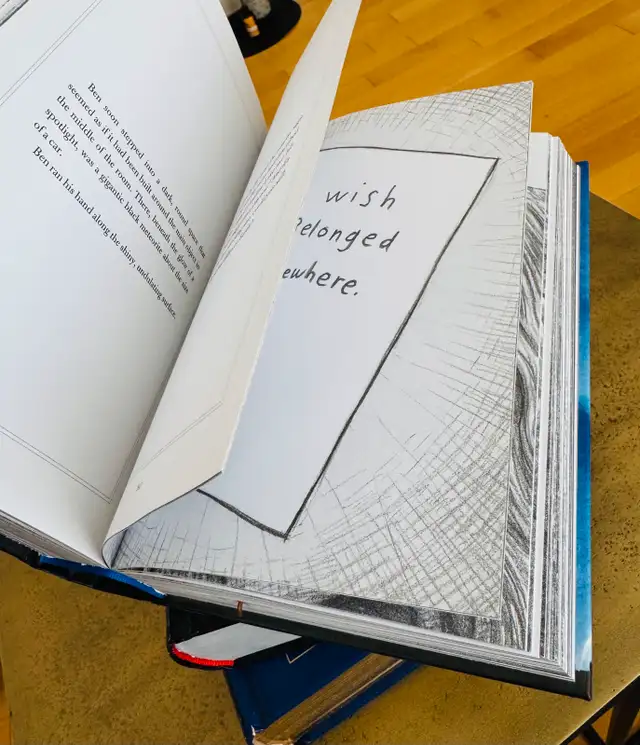 Ben soon stepped into a dark, round space that
seemed as if it had been built around the main object in
the middle of the room. There, beneath the glow of a
spotlight, was a gigantic black meteorite about the size
of a car.
Ben ran his hand along the shiny, undulating surface.
wish
Belonged
ewhere.